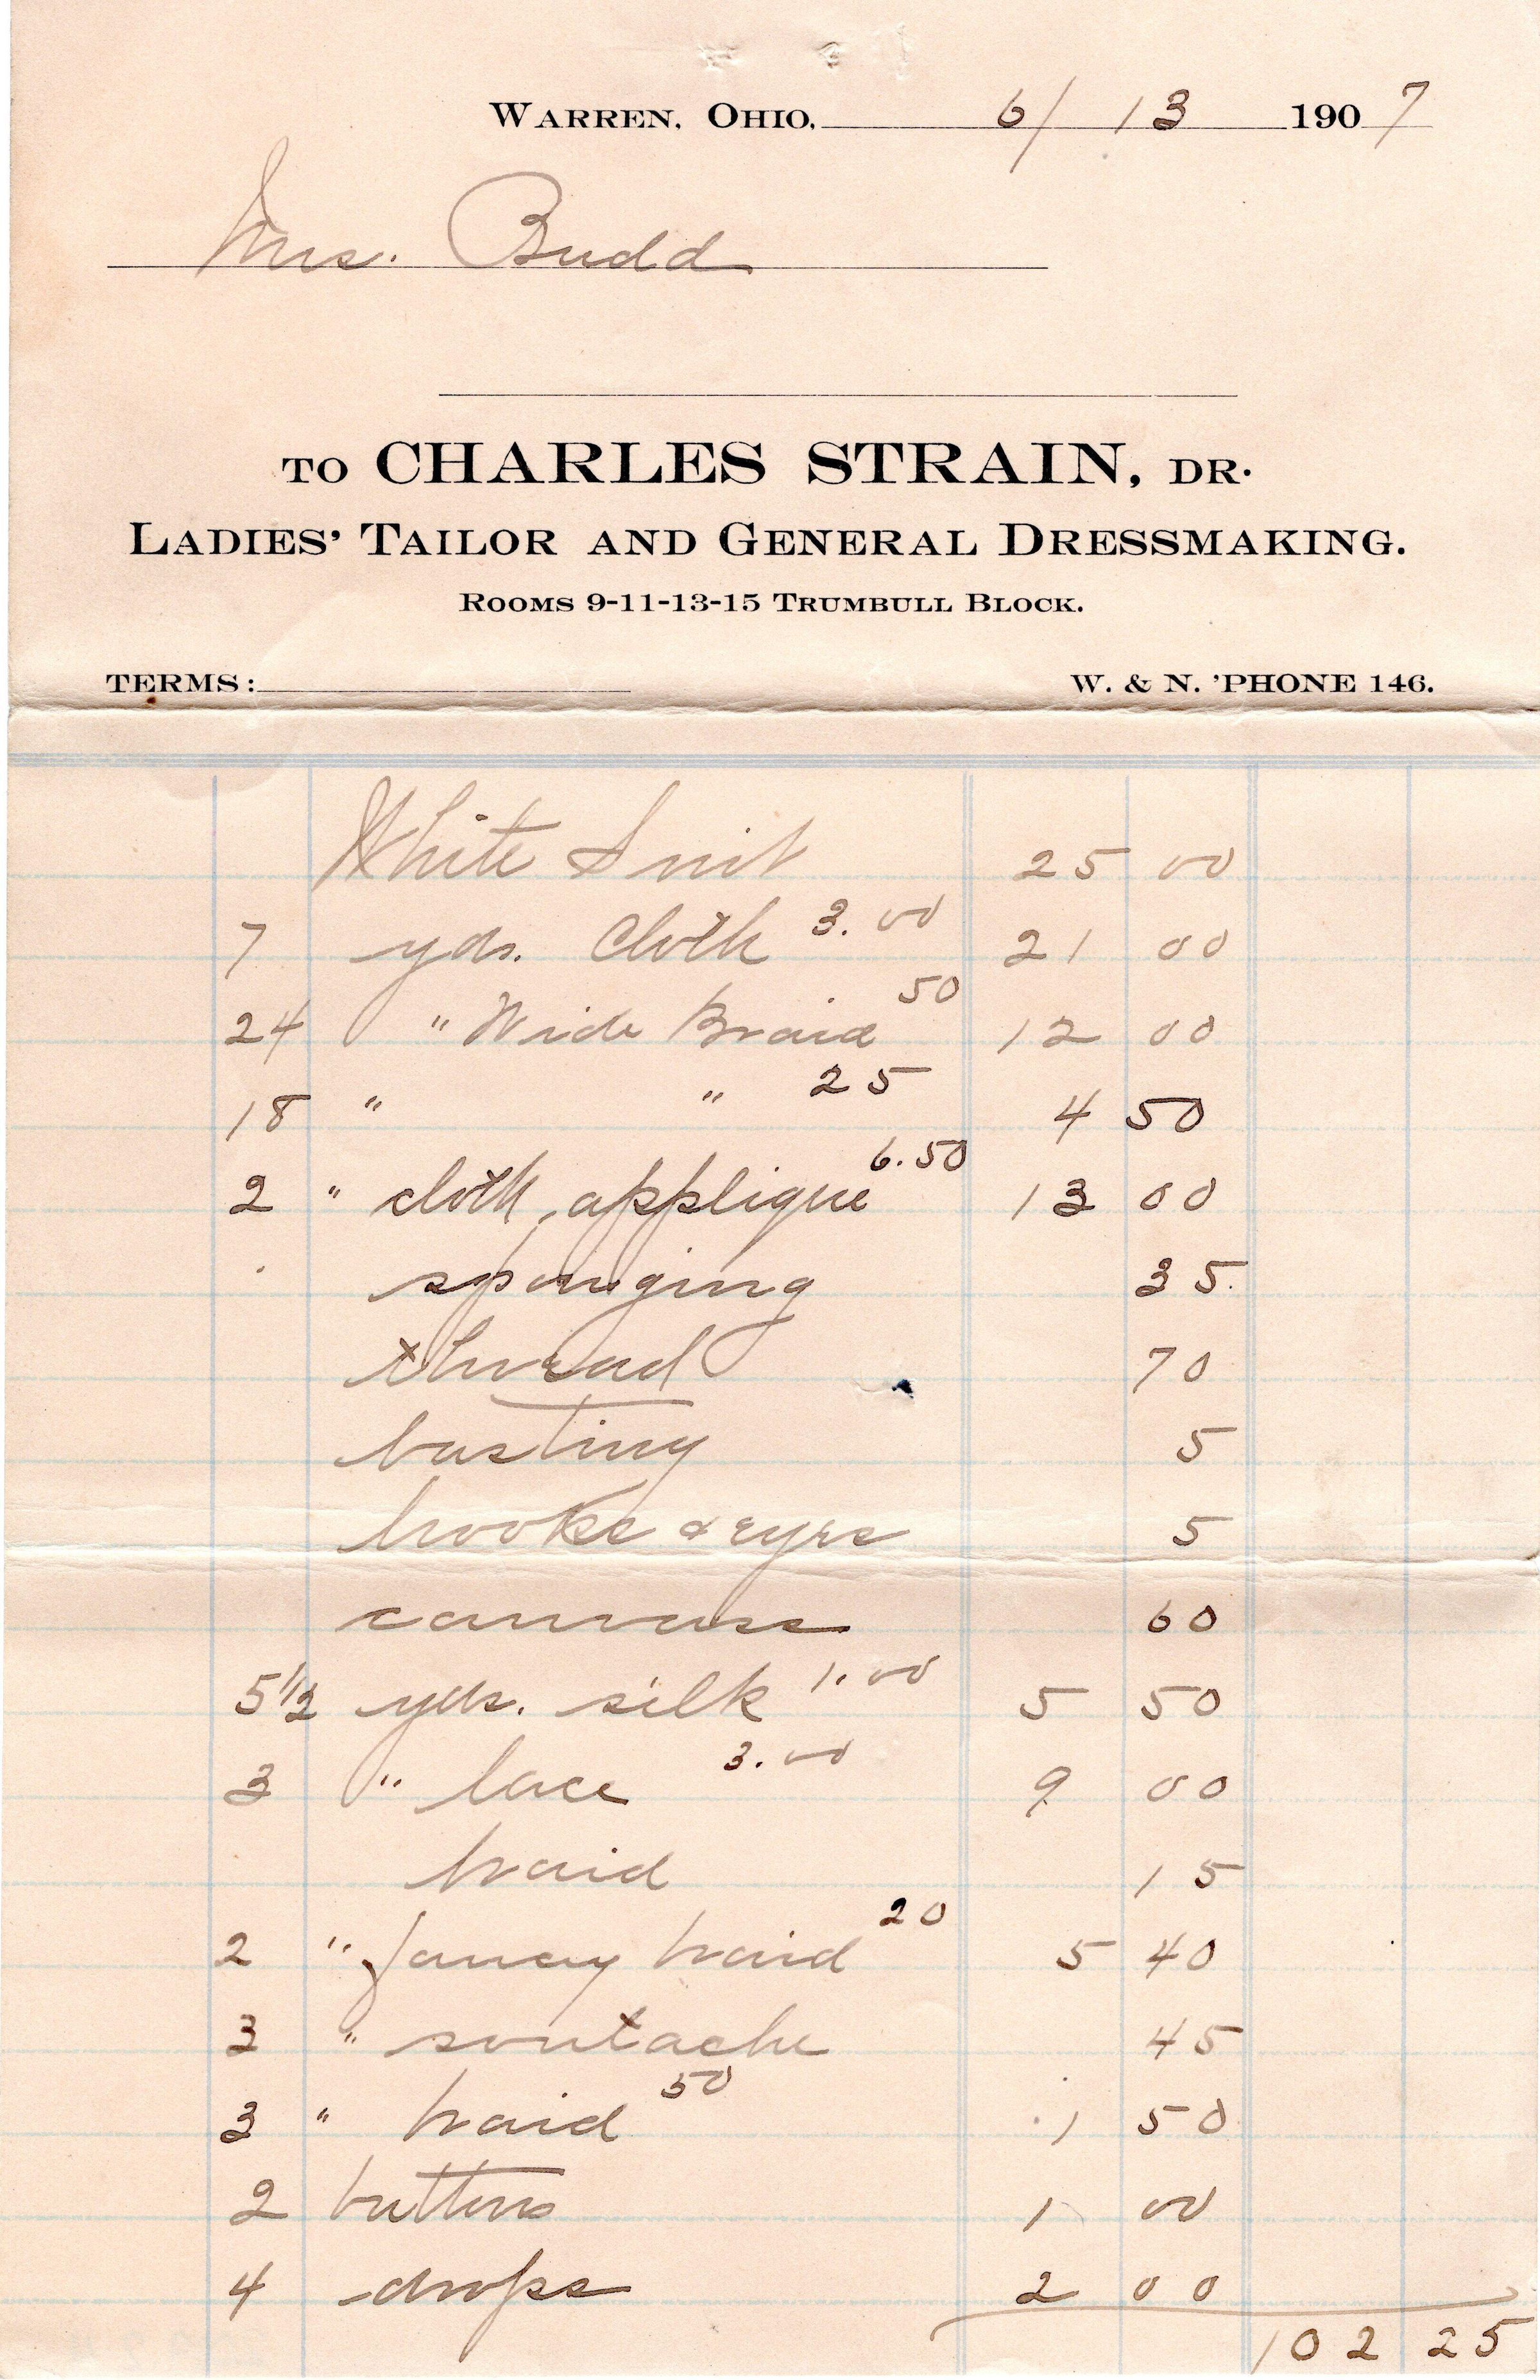 WARREN, OHIO, 6/13 1907
Mrs. Budd
TO CHARLES STRAIN, DR.
LADIES' TAILOR AND GENERAL DRESSMAKING.
ROOMS 9-11-13-15 TRUMBULL BLOCK.
TERMS: W. & N. 'PHONE 146.
White Suit 25 00
7 yds. Cloth 3.00 21 00
24 " Wide Braid 50 12 00
18 " " 25 4 50
2 " cloth applique 6.50 13 00
sponging 35
thread 70
basting 5
hooks & eyes 5
canvass 60
5 1/2 yds. silk 1.00 5 50
3 " lace 3.00 9 00
braid 15
2 " fancy braid 20 5 40
3 " soutache 45
3 " braid 50 1 50
2 buttons 1 00
4 drops 2 00
102 25